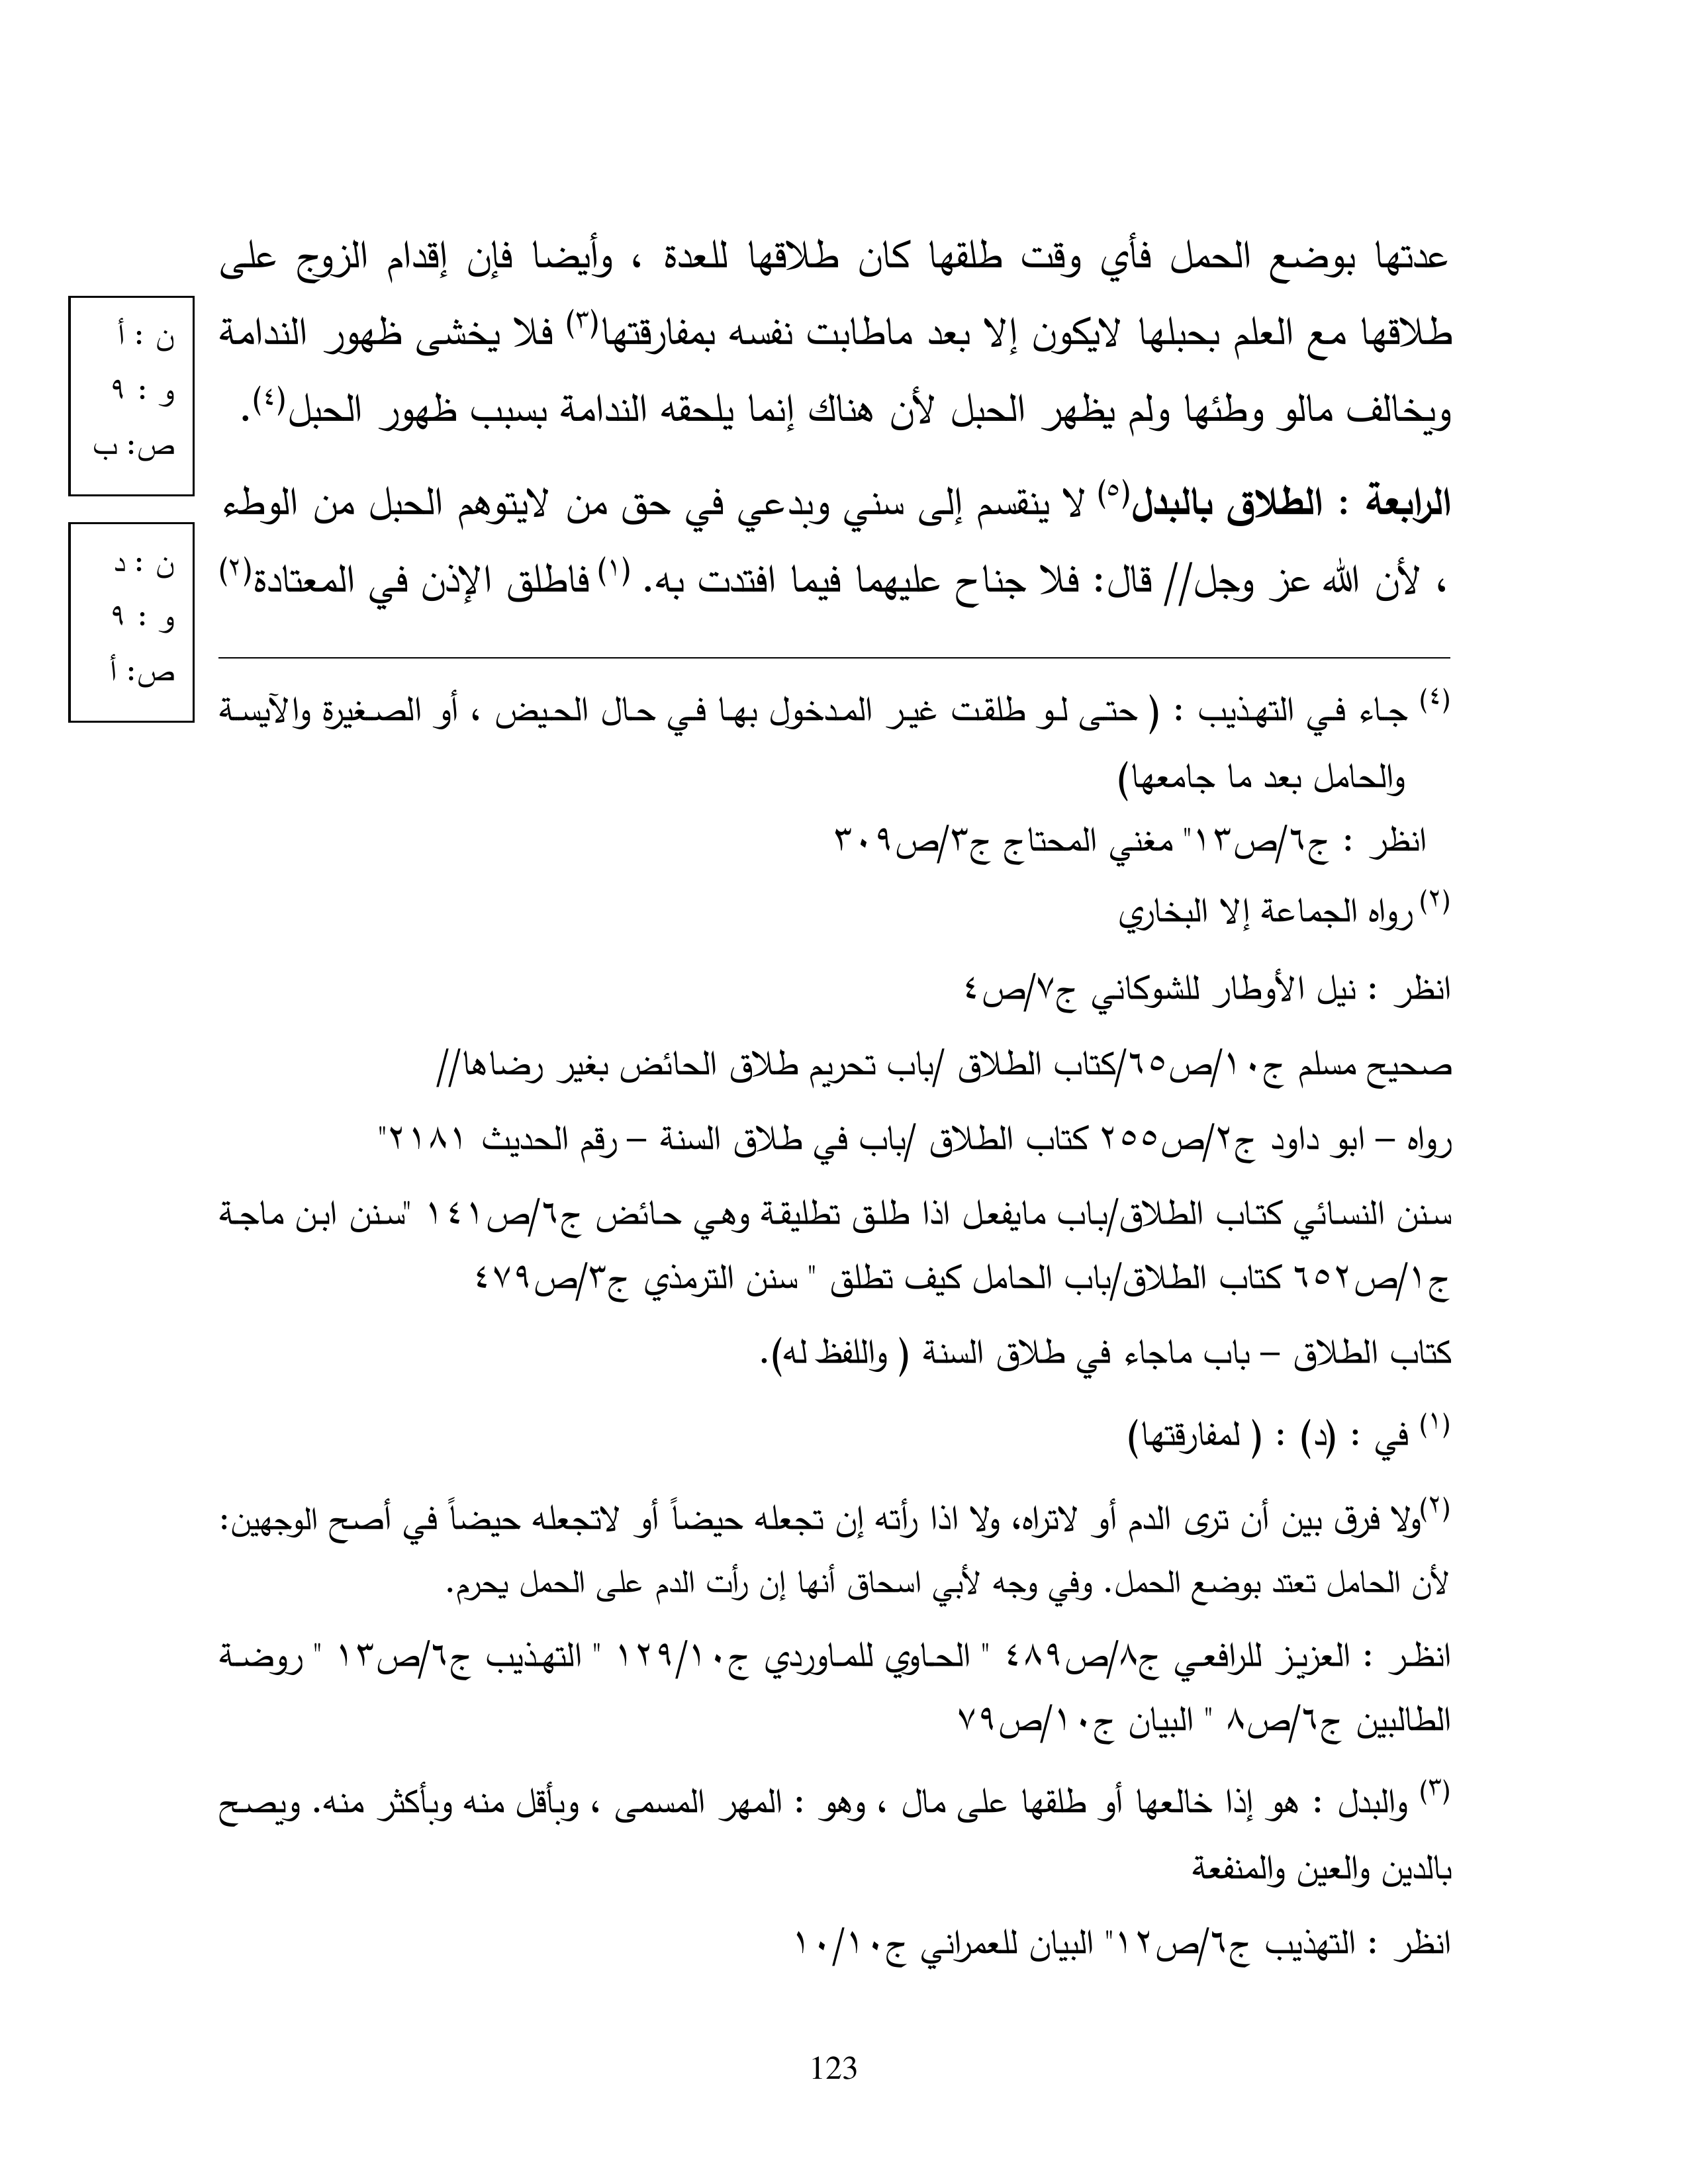 عدتها بوضع الحمل فأي وقت طلقها كان طلاقها للعدة ، وأيضا فإن إقدام الزوج على
طلاقها مع العلم بحبلها لايكون إلا بعد ماطابت نفسه بمفارقتها(٣) فلا يخشى ظهور الندامة
ويخالف مالو وطئها ولم يظهر الحبل لأن هناك إنما يلحقه الندامة بسبب ظهور الحبل(٤).
الرابعة : الطلاق بالبدل(٥) لا ينقسم إلى سني وبدعي في حق من لايتوهم الحبل من الوطء
، لأن الله عز وجل// قال: فلا جناح عليهما فيما افتدت به. (١) فاطلق الإذن في المعتادة(٢)
ن : أ
و : ٩
ص: ب
ن : د
و : ٩
ص: أ
(٤) جاء في التهذيب : ( حتى لو طلقت غير المدخول بها في حال الحيض ، أو الصغيرة والآيسة
والحامل بعد ما جامعها)
انظر : ج٦/ص١٣" مغني المحتاج ج٣/ص٣٠٩
(٢) رواه الجماعة إلا البخاري
انظر : نيل الأوطار للشوكاني ج٧/ص٤
صحيح مسلم ج١٠/ص٦٥/كتاب الطلاق /باب تحريم طلاق الحائض بغير رضاها//
رواه – ابو داود ج٢/ص٢٥٥ كتاب الطلاق /باب في طلاق السنة – رقم الحديث ٢١٨١"
سنن النسائي كتاب الطلاق/باب مايفعل اذا طلق تطليقة وهي حائض ج٦/ص١٤١ "سنن ابن ماجة
ج١/ص٦٥٢ كتاب الطلاق/باب الحامل كيف تطلق " سنن الترمذي ج٣/ص٤٧٩
كتاب الطلاق – باب ماجاء في طلاق السنة ( واللفظ له).
(١) في : (د) : ( لمفارقتها)
(٢)ولا فرق بين أن ترى الدم أو لاتراه، ولا اذا رأته إن تجعله حيضاً أو لاتجعله حيضاً في أصح الوجهين:
لأن الحامل تعتد بوضع الحمل. وفي وجه لأبي اسحاق أنها إن رأت الدم على الحمل يحرم.
انظر : العزيز للرافعي ج٨/ص٤٨٩ " الحاوي للماوردي ج١٢٩/١٠ " التهذيب ج٦/ص١٣ " روضة
الطالبين ج٦/ص٨ " البيان ج١٠/ص٧٩
(٣) والبدل : هو إذا خالعها أو طلقها على مال ، وهو : المهر المسمى ، وبأقل منه وبأكثر منه. ويصح
بالدين والعين والمنفعة
انظر : التهذيب ج٦/ص١٢" البيان للعمراني ج١٠/١٠
123